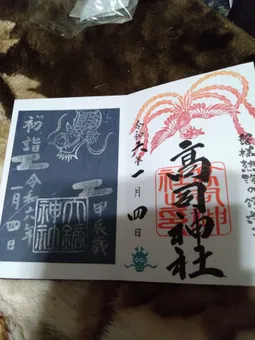 令和六年
一月四日
高司神社
初詣
令和六年
一月四日
甲辰歳